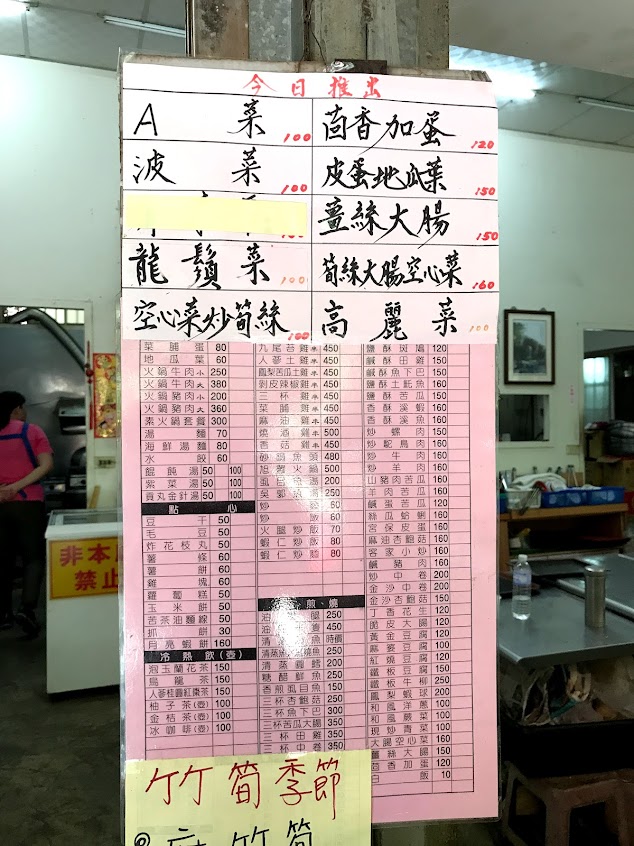 今日推出
A菜 100
茴香加蛋 120
波菜 100
皮蛋地瓜葉 150
薑絲大腸 150
龍鬚菜 100
筍絲大腸空心菜 160
空心菜炒筍絲 100
高麗菜 100
菜脯蛋 80
地瓜葉 60
火鍋牛肉小 250
火鍋牛肉大 380
火鍋豬肉小 240
火鍋豬肉大 360
素火鍋套餐 300
湯麵 70
海鮮湯麵 80
水餃 60
餛飩湯 50 100
紫菜湯 50 100
貢丸金針湯 50 100
點心
豆干 50
毛豆 50
炸花枝丸 50
薯條 60
薯餅 60
雞塊 60
蘿蔔糕 50
玉米餅 50
苦茶油麵線 50
抓餅 30
月亮蝦餅 160
冷熱飲(壺)
泡玉蘭花茶 150
烏龍茶 150
人蔘桂圓紅棗茶 150
柚子茶(壺) 100
金桔茶(壺) 100
冰咖啡(壺) 100
九尾草雞半 450
人蔘土雞半 450
鳳梨苦瓜土雞半 450
剝皮辣椒雞半 450
三杯雞半 450
菜脯雞半 450
麻油雞半 450
燒酒雞半 500
香菇雞半 450
砂鍋魚頭 480
500
250
50
炒 60
炒飯 60
火腿炒飯 70
蝦仁炒飯 80
蝦仁炒麵 80
煎、燒
250
250
魚 時價
清蒸 250
清蒸鱈 200
糖醋鮮魚 250
香煎虱目魚 150
三杯杏鮑菇 250
三杯魚下巴 300
三杯苦瓜大腸 350
三杯田雞 350
三杯中卷 350
鹽酥斑鳩 120
鹹酥田雞 150
鹹酥魚下巴 150
鹽酥土魠魚 160
香酥溪蝦 160
香酥溪魚 160
炒螺肉 150
炒鴕鳥肉 150
炒牛肉 160
炒羊肉 160
山豬肉苦瓜 160
羊肉苦瓜 160
鹹蛋苦瓜 160
絲瓜蛤蜊 160
宮保皮蛋 160
麻油杏鮑菇 160
客家小炒 160
鹹豬肉 160
炒中卷 200
金沙中卷 200
金沙杏鮑菇 150
丁香花生 120
脆皮大腸 150
黃金豆腐 120
麻婆豆腐 100
紅燒豆腐 120
鐵板豆腐 150
鐵板牛柳 250
鳳梨蝦球 200
和風洋蔥 100
和風蕨菜 100
現炒青菜 100
大腸空心菜 160
薑絲大腸 150
茴香加蛋 120
白飯 10
非本
禁止
竹筍季節